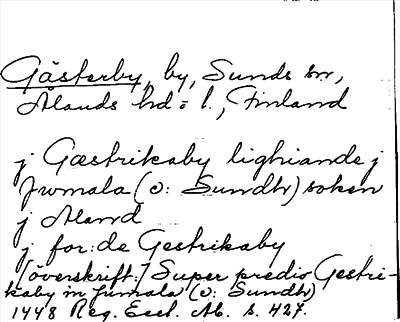 Gästerby, by, Sunds sn,
Ålands hd = l., Finland
j Gæstrikaby lighiande j
Jwmala (ɔ: Sundh) soken
j Aland
j for:de Gestrikaby
[överskrift:] Super predio Gestri-
kaby in Jumala (ɔ: Sundh)
1448 Reg. Eccl. Ab. s. 427.